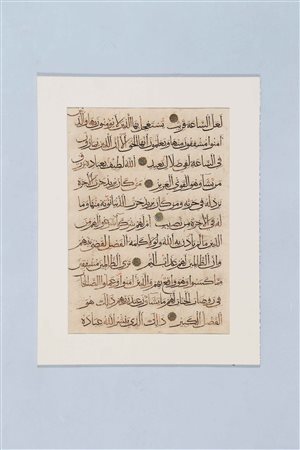 لعل الساعة قريب يستعجل بها الذين لا يؤمنون بها والذين
امنوا مشفقون منها ويعلمون انها الحق الا ان الذين يمارون
في الساعة لفي ضلال بعيد الله لطيف بعباده يرزق
من يشاء وهو القوي العزيز من كان يريد حرث الاخرة
نزد له في حرثه ومن كان يريد حرث الدنيا نؤته منها وما
له في الاخرة من نصيب ام لهم شركاء شرعوا لهم من
الدين ما لم ياذن به الله ولولا كلمة الفصل لقضي بينهم
وان الظالمين لهم عذاب اليم ترى الظالمين مشفقين
مما كسبوا وهو واقع بهم والذين امنوا وعملوا الصالحات
في روضات الجنات لهم ما يشاؤن عند ربهم ذلك هو
الفضل الكبير ذلك الذي يبشر الله عباده